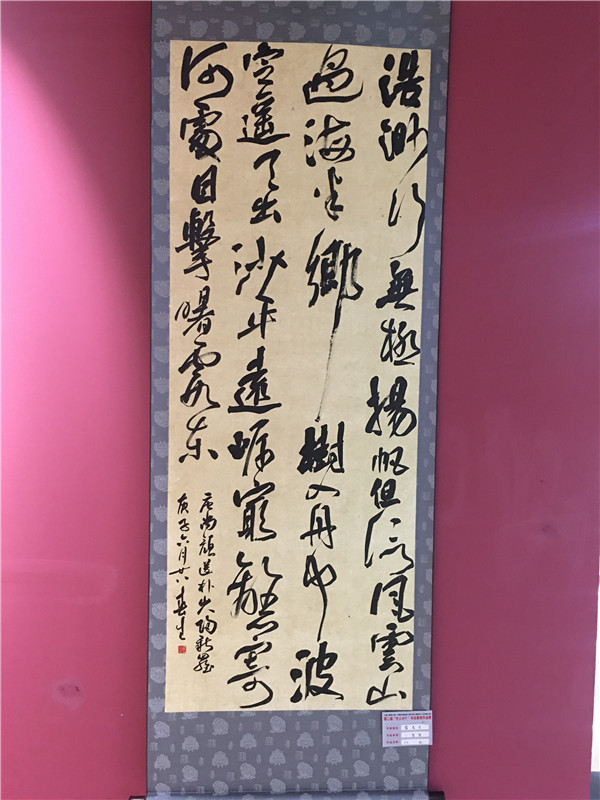 浩渺行無極揚帆但信風雲山
過海半鄉樹入舟中波
定遥天出沙平遠岸窮離心寄
何處目擊曙霞東
唐尚顔送朴山人歸新羅
庚子六月廿八春生